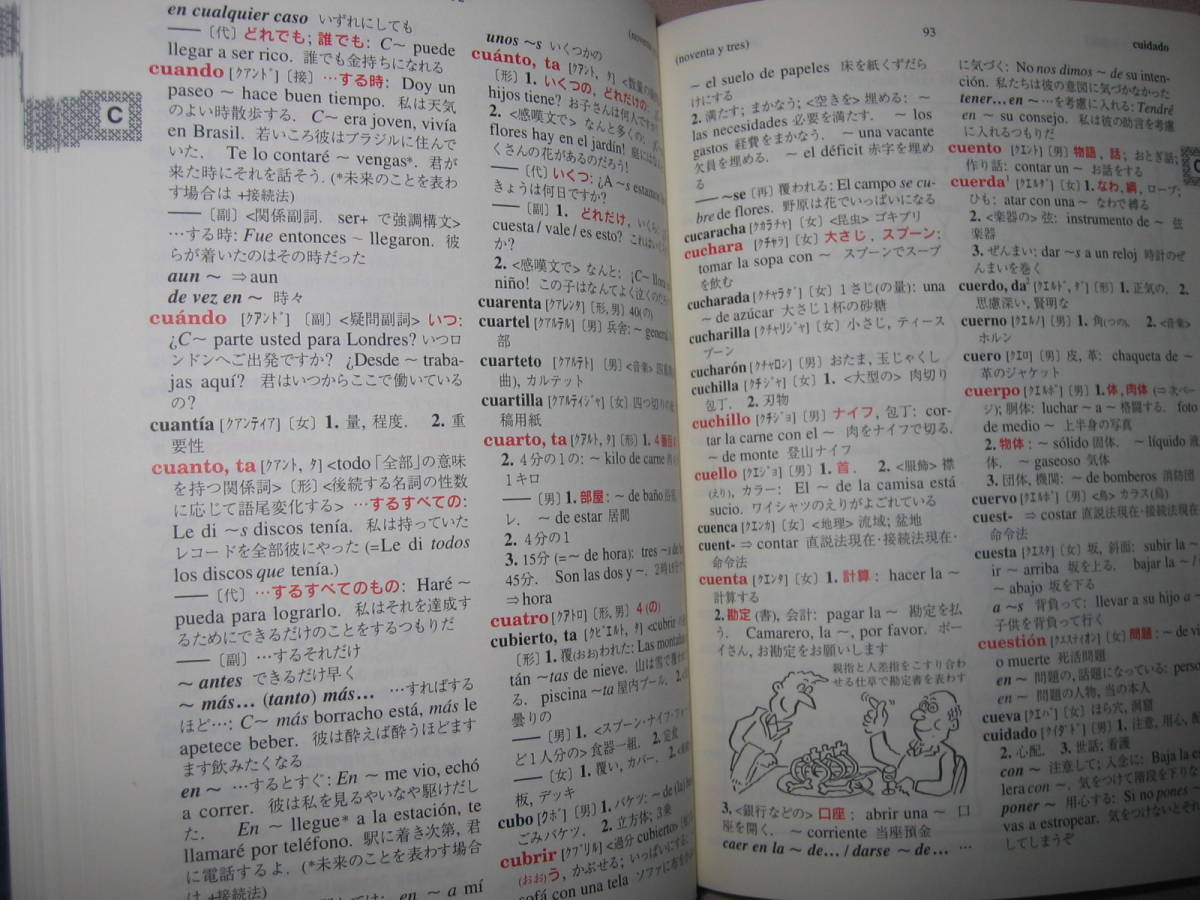 en cualquier caso いずれにしても
――〔代〕どれでも; 誰でも: C~ puede
llegar a ser rico. 誰でも金持ちになれる
cuando [クアンド] 〔接〕…する時: Doy un
paseo ~ hace buen tiempo. 私は天気
のよい時散歩する. C~ era joven, vivía
en Brasil. 若いころ彼はブラジルに住んで
いた. Te lo contaré ~ vengas*. 君が
来た時にそれを話そう. (*未来のことを表わ
す場合は +接続法)
――〔副〕<関係副詞. ser+ で強調構文>
…する時: Fue entonces ~ llegaron. 彼
らが着いたのはその時だった
aun ~ ⇒aun
de vez en ~ 時々
cuándo [クアンド] 〔副〕<疑問副詞> いつ:
¿C~ parte usted para Londres? いつロ
ンドンへご出発ですか? ¿Desde ~ traba-
jas aquí? 君はいつからここで働いている
の?
cuantía [クアンティア] 〔女〕1. 量, 程度. 2. 重
要性
cuanto, ta [クアント, タ] <todo「全部」の意味
を持つ関係詞> 〔形〕<後続する名詞の性数
に応じて語尾変化する> …するすべての:
Le di ~s discos tenía. 私は持っていた
レコードを全部彼にやった (=Le di todos
los discos que tenía.)
――〔代〕…するすべてのもの: Haré ~
pueda para lograrlo. 私はそれを達成す
るためにできるだけのことをするつもりだ
――〔副〕…するそれだけ
~ antes できるだけ早く
~ más… (tanto) más… …すればする
ほど…: C~ más borracho está, más le
apetece beber. 彼は酔えば酔うほどます
ます飲みたくなる
en ~ …するとすぐ: En ~ me vio, echó
a correr. 彼は私を見るやいなや駆けだし
た. En ~ llegue* a la estación, te
llamaré por teléfono. 駅に着き次第, 君
に電話するよ. (*未来のことを表わす場合
は +接続法)
en ~ a mí
C
unos ~s いくつかの
cuánto, ta [クアント, タ] <数量の
〔形〕1. いくつの, どれだけの:
hijos tiene? お子さんは何人ですか
2. <感嘆文で> なんと多くの:
flores hay en el jardín! 庭には
くさんの花があるのだろう!
――〔代〕いくつ: ¿A ~s estamos
きょうは何日ですか?
――〔副〕1. どれだけ, いくら
cuesta / vale / es esto? これはいく
か?
2. <感嘆文で> なんと: ¡C~ llo
niño! この子はなんてよく泣くのだ
cuarenta [クアレンタ] 〔形, 男〕40(の)
cuartel [クアルテル] 〔男〕兵舎: ~ general
部
cuarteto [クアルテト] 〔男〕<音楽> 四
曲), カルテット
cuartilla [クアルティジャ] 〔女〕四つ切りの
稿用紙
cuarto, ta [クアルト, タ] 〔形〕1. 4番目
2. 4分の1の: ~ kilo de carne 肉
1キロ
――〔男〕1. 部屋: ~ de baño 浴
レ. ~ de estar 居間
2. 4分の1
3. 15分 (=~ de hora): tres ~s de
45分. Son las dos y ~. 2時15
⇒hora
cuatro [クアトロ] 〔形, 男〕4(の)
cubierto, ta [クビエルト, タ] <cubrir の
〔形〕1. 覆(おお)われた: Las monta
tán ~tas de nieve. 山は雪で覆われ
る. piscina ~ta 屋内プール. 2.
曇りの
――〔男〕1. <スプーン・ナイフ・フォー
ど1人分の> 食器一組. 2. 定食
――〔女〕1. 覆い, カバー. 2. <
板, デッキ
cubo [クボ] 〔男〕1. バケツ: ~ de (la) b
ごみバケツ. 2. 立方体; 3乗
cubrir [クブリル] <過分 cubierto> 〔他〕
(おお)う, かぶせる; いっぱいにする
sofá con una tela ソファに布を
(noventa y tres)
93
cuidado
~ el suelo de papeles 床を紙くずだら
けにする
2. 満たす; まかなう; <空きを> 埋める: ~
las necesidades 必要を満たす. ~ los
gastos 経費をまかなう. ~ una vacante
欠員を埋める. ~ el déficit 赤字を埋め
る
――~se 〔再〕覆われる: El campo se cu-
bre de flores. 野原は花でいっぱいになる
cucaracha [クカラチャ] 〔女〕<昆虫> ゴキブリ
cuchara [クチャラ] 〔女〕大さじ, スプーン:
tomar la sopa con ~ スプーンでスープ
を飲む
cucharada [クチャラダ] 〔女〕1さじ(の量): una
~ de azúcar 大さじ1杯の砂糖
cucharilla [クチャリジャ] 〔女〕小さじ, ティース
プーン
cucharón [クチャロン] 〔男〕おたま, 玉じゃくし
cuchilla [クチジャ] 〔女〕1. <大型の> 肉切り
包丁. 2. 刃物
cuchillo [クチジョ] 〔男〕ナイフ, 包丁: cor-
tar la carne con el ~ 肉をナイフで切る.
~ de monte 登山ナイフ
cuello [クエジョ] 〔男〕1. 首. 2. <服飾> 襟
(えり), カラー: El ~ de la camisa está
sucio. ワイシャツのえりがよごれている
cuenca [クエンカ] 〔女〕<地理> 流域; 盆地
cuent- ⇒ contar 直説法現在・接続法現在・
命令法
cuenta [クエンタ] 〔女〕1. 計算: hacer la ~
計算する
2. 勘定(書), 会計: pagar la ~ 勘定を払
う. Camarero, la ~, por favor. ボー
イさん, お勘定をお願いします
親指と人差指をこすり合わ
せる仕草で勘定書を表わす
3. <銀行などの> 口座: abrir una ~ 口
座を開く. ~ corriente 当座預金
caer en la ~ de… / darse ~ de… …
に気づく: No nos dimos ~ de su inten-
ción. 私たちは彼の意図に気づかなかった
tener…en ~ …を考慮に入れる: Tendré
en ~ su consejo. 私は彼の助言を考慮
に入れるつもりだ
cuento [クエント] 〔男〕物語, 話; おとぎ話;
作り話: contar un ~ お話をする
cuerda¹ [クエルダ] 〔女〕1. なわ, 綱, ロープ;
ひも: atar con una ~ なわで縛る
2. <楽器の> 弦: instrumento de ~ 弦
楽器
3. ぜんまい: dar ~s a un reloj 時計のぜ
んまいを巻く
cuerdo, da² [クエルド, ダ] 〔形〕1. 正気の. 2.
思慮深い, 賢明な
cuerno [クエルノ] 〔男〕1. 角(つの). 2. <音楽>
ホルン
cuero [クエロ] 〔男〕皮, 革: chaqueta de ~
革のジャケット
cuerpo [クエルポ] 〔男〕1. 体, 肉体 (⇒次ペー
ジ); 胴体: luchar ~ a ~ 格闘する. foto
de medio ~ 上半身の写真
2. 物体: ~ sólido 固体. ~ líquido 液
体. ~ gaseoso 気体
3. 団体, 機関: ~ de bomberos 消防団
cuervo [クエルボ] 〔男〕<鳥> カラス(烏)
cuest- ⇒ costar 直説法現在・接続法現在・
命令法
cuesta [クエスタ] 〔女〕坂, 斜面: subir la ~
ir ~ arriba 坂を上る.
~ abajo 坂を下る
a ~s 背負って: llevar a su hijo a ~
子供を背負って行く
cuestión [クエスティオン] 〔女〕問題: ~ de vi
o muerte 死活問題
en ~ 問題の, 話題になっている: perso
en ~ 問題の人物, 当の本人
cueva [クエバ] 〔女〕ほら穴, 洞窟
cuidado [クイダド] 〔男〕1. 注意, 用心, 配
2. 心配. 3. 世話; 看護
con ~ 注意して; 入念に: Baja la es
lera con ~. 気をつけて階段を下りな
poner ~ 用心する: Si no pones ~
vas a estropear. 気をつけないとそれ
してしまうぞ